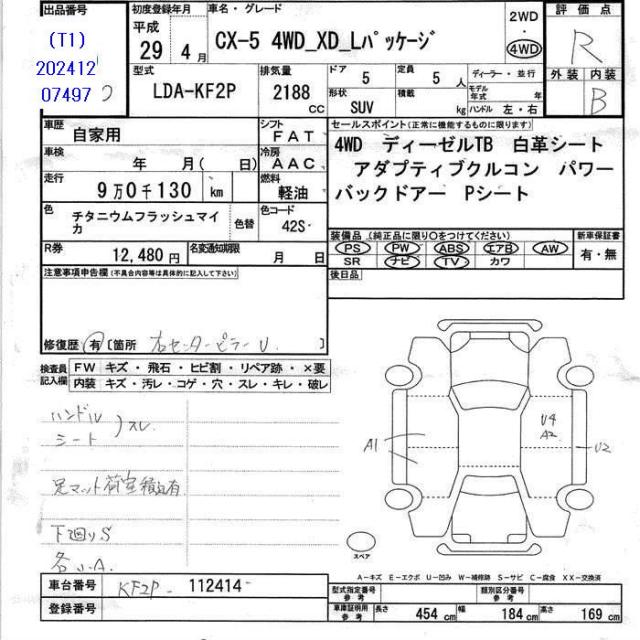 出品番号 初度登録年月 車名・グレード 2WD 評価点
(T1) 平成 29 4月 CX-5 4WD_XD_Lパッケージ ・ 4WD R
202412
07497
型式 排気量 ドア 5 定員 5人 ディーラー・並行 外装 内装
LDA-KF2P 2188 CC 形状 SUV 積載 kg モデル年式 年 ハンドル 左・右 B
車歴 自家用 シフト FAT セールスポイント(正常に機能するものに限ります)
車検 年 月 ( 日) 冷房 AAC 4WD ディーゼルTB 白革シート
走行 9万0千130 km 燃料 軽油 アダプティブクルコン パワー
バックドアー Pシート
色 チタニウムフラッシュマイカ 色替 色コード 42S
装備品 (純正品に限り○をつけてください) 新車保証書
PS PW ABS エアB AW 有・無
SR ナビ TV カワ
R券 12,480円 名変通知期限 月 日 後日品
注意事項申告欄 (不具合内容等は具体的に記入して下さい)
修復歴 有 [箇所 右センターピラーU
検査員記入欄 FW キズ・飛石・ヒビ割・リペア跡・×要
内装 キズ・汚レ・コゲ・穴・スレ・キレ・破レ
ハンドル
シート )スレ
A1 U4 A2 U2
足マット荷室積込有
下廻りS
スペア
A-キズ E-エクボ U-凹み W-補修跡 S-サビ C-腐食 XX-交換済
車台番号 KF2P - 112414
型式指定番号 参考 類別区分番号 参考
登録番号
車庫証明用 参考 長さ 454 cm 幅 184 cm 高さ 169 cm